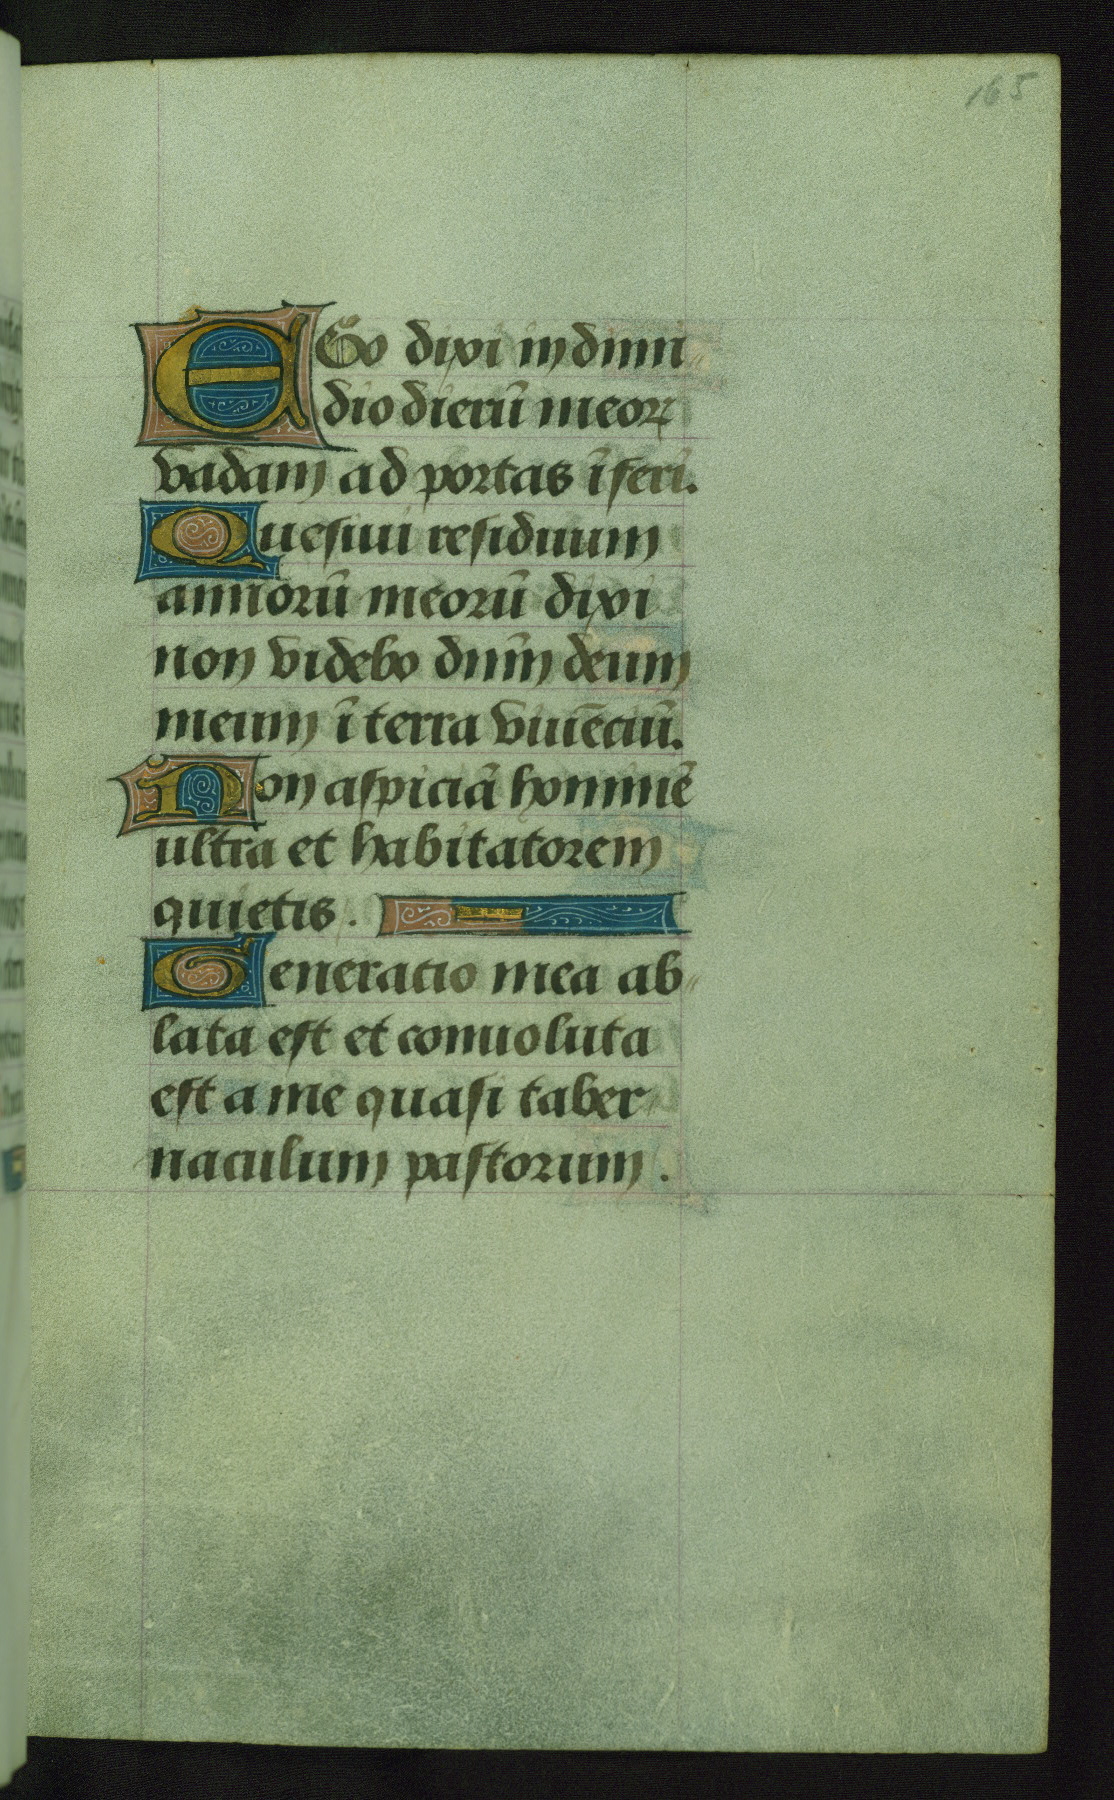 165
EGo dixi in dimi
dio dierū meoꝝ
vadam ad portas īferi.
Quesiui residuum
annorū meorū dixi
non videbo dn̄m deum
meum ī terra viuēciū.
Non aspiciā hominē
ultra et habitatorem
quietis.
Generatio mea ab
lata est et conuoluta
est a me quasi taber
naculum pastorum.